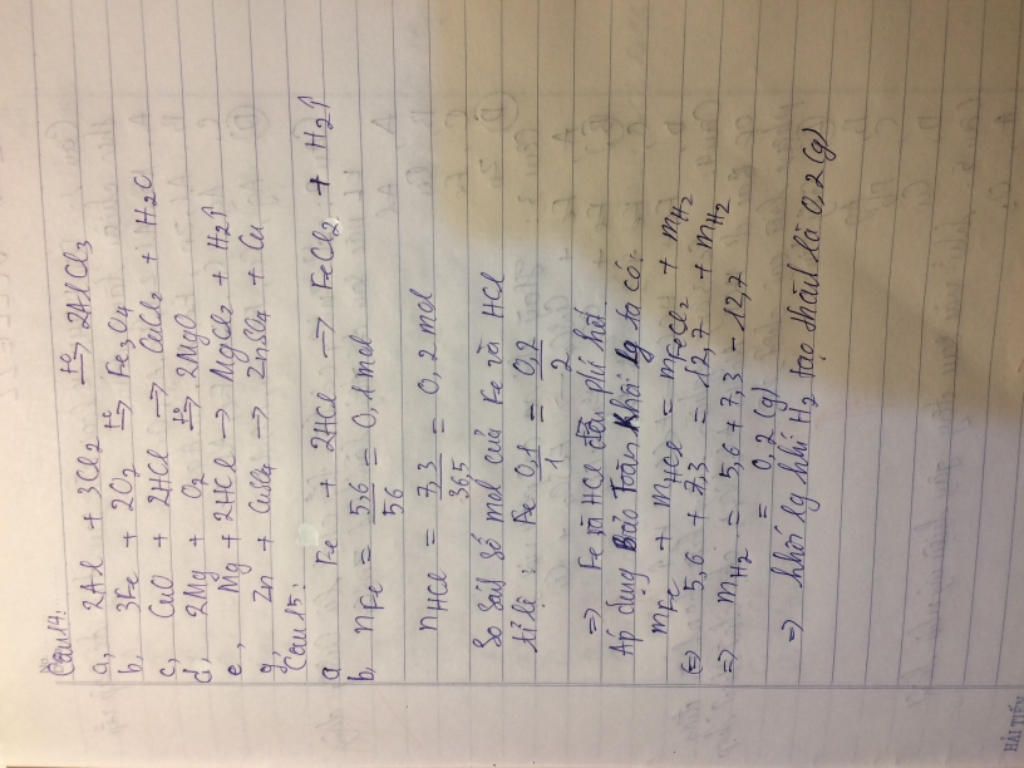 Câu 14:
a, 2Al + 3Cl2 t°→ 2AlCl3
b, 3Fe + 2O2 t°→ Fe3O4
c, CuO + 2HCl → CuCl2 + H2O
d, 2Mg + O2 t°→ 2MgO
e, Mg + 2HCl → MgCl2 + H2↑
g, Zn + CuSO4 → ZnSO4 + Cu
Câu 15:
a Fe + 2HCl → FeCl2 + H2↑
b, nFe = 5,6/56 = 0,1 mol
nHCl = 7,3/36,5 = 0,2 mol
So sánh số mol của Fe và HCl
tỉ lệ: Fe 0,1/1 = 0,2/2
=> Fe và HCl đều p/ứ hết
Áp dụng Bảo Toàn Khối lg ta có:
mFe + mHCl = mFeCl2 + mH2
(=) 5,6 + 7,3 = 12,7 + mH2
=> mH2 = 5,6 + 7,3 - 12,7
= 0,2 (g)
=> khối lg khí H2 tạo thành là 0,2 (g)
HẢI TIẾN